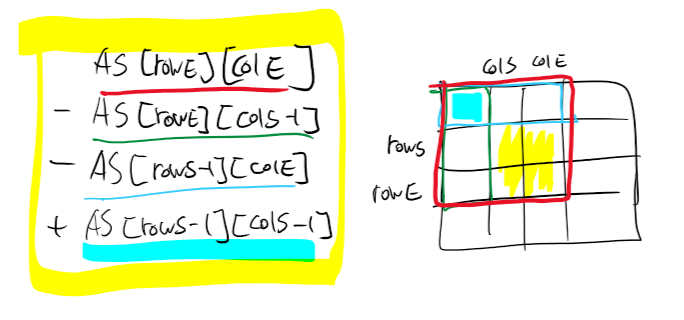 AS[rowE][colE]
- AS[rowE][colS-1]
- AS[rowS-1][colE]
+ AS[rowS-1][colS-1]
colS colE
rowS
rowE